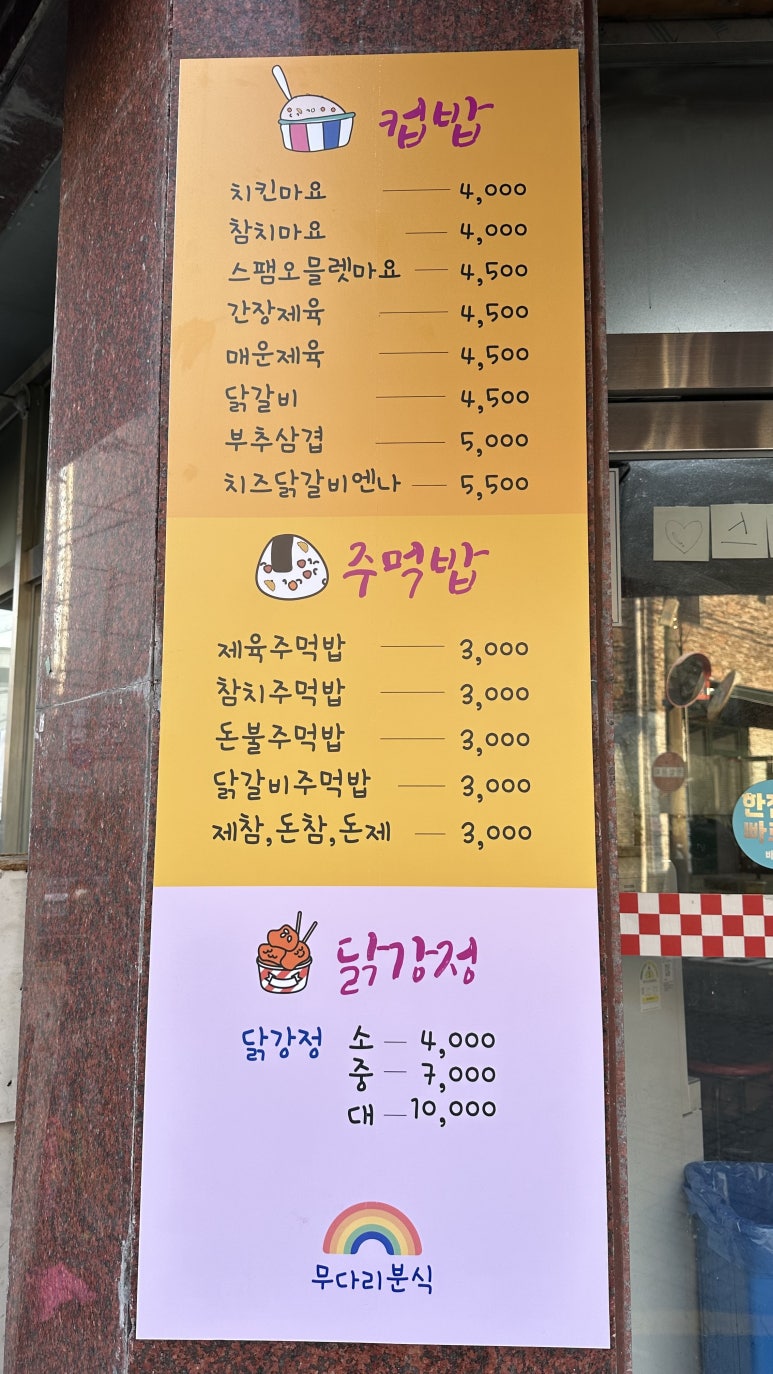 컵밥
치킨마요 — 4,000
참치마요 — 4,000
스팸오믈렛마요 — 4,500
간장제육 — 4,500
매운제육 — 4,500
닭갈비 — 4,500
부추삼겹 — 5,000
치즈닭갈비엔나 — 5,500
주먹밥
제육주먹밥 — 3,000
참치주먹밥 — 3,000
돈불주먹밥 — 3,000
닭갈비주먹밥 — 3,000
제참,돈참,돈제 — 3,000
닭강정
닭강정 소 — 4,000
중 — 7,000
대 — 10,000
무다리분식